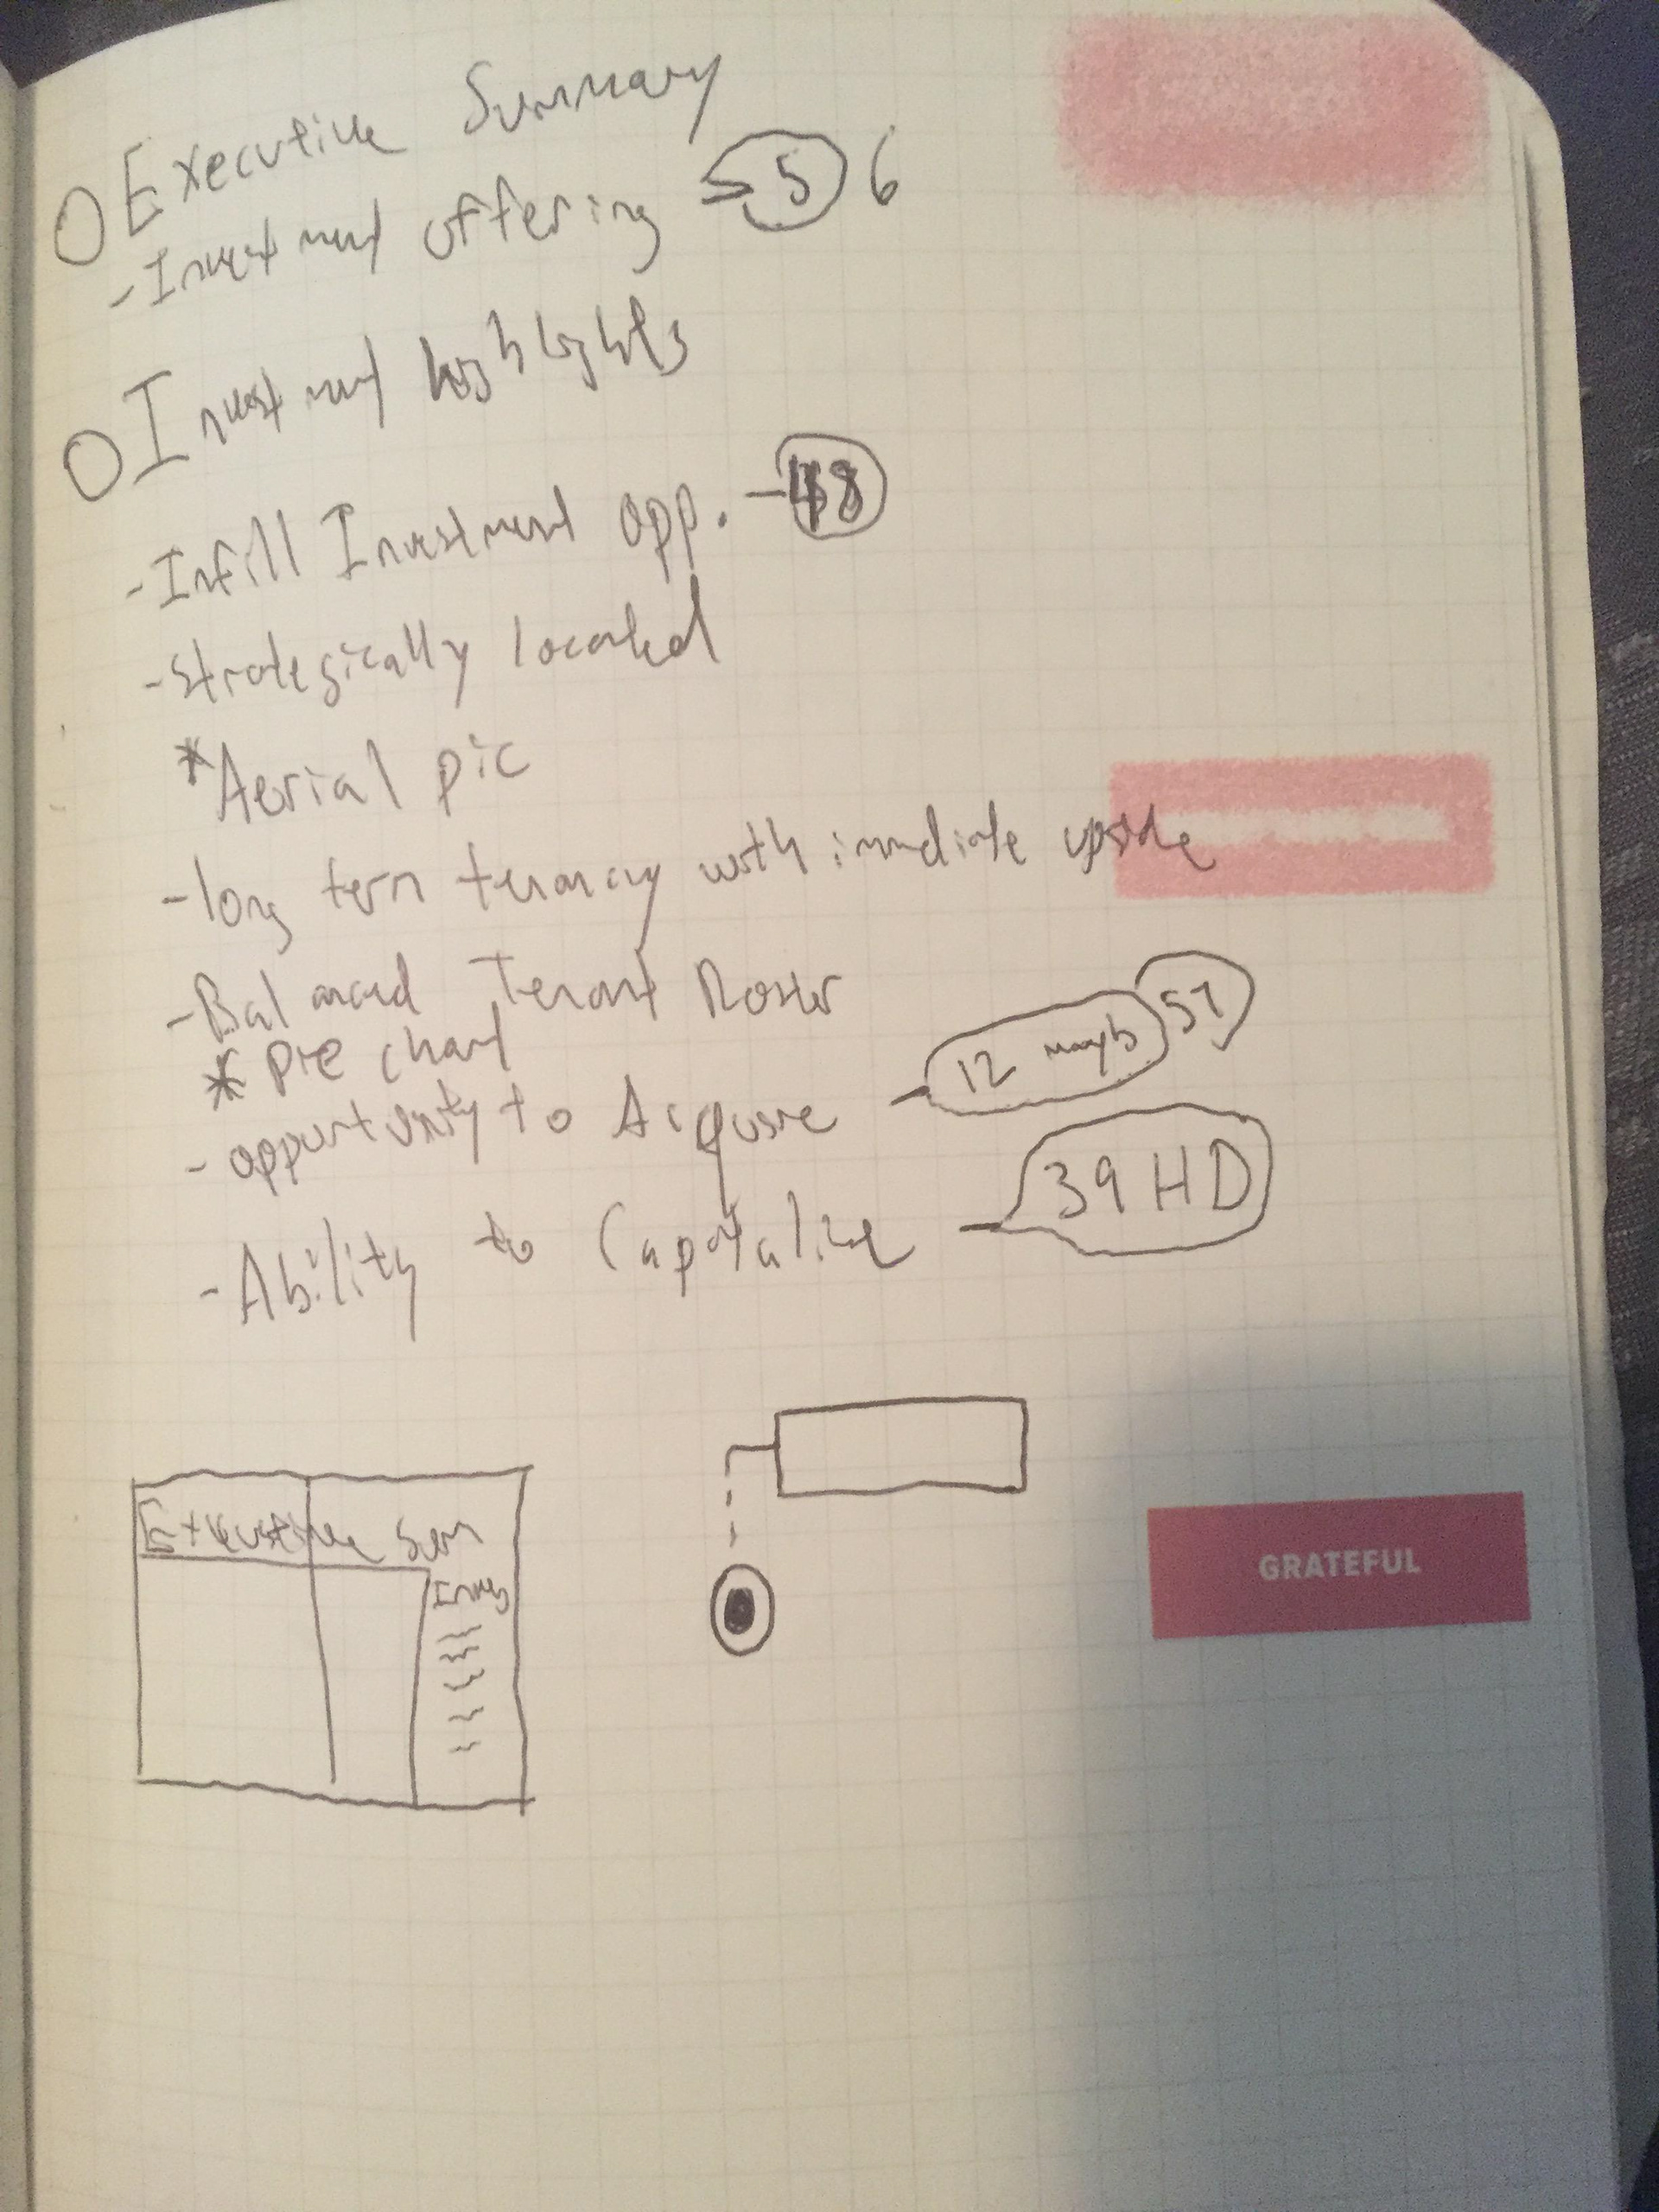 Executive Summary
- Investment offering 5 6
Investment highlights
- Infill Investment opp. -
- Strategically located
* Aerial pic
- long term tenancy with immediate upside
- Balanced Tenant Roster
* Pie chart
- opportunity to Acquire - 12 mayb 57
- Ability to Capitalize - 39 HD
Executive Sum
Inves
GRATEFUL